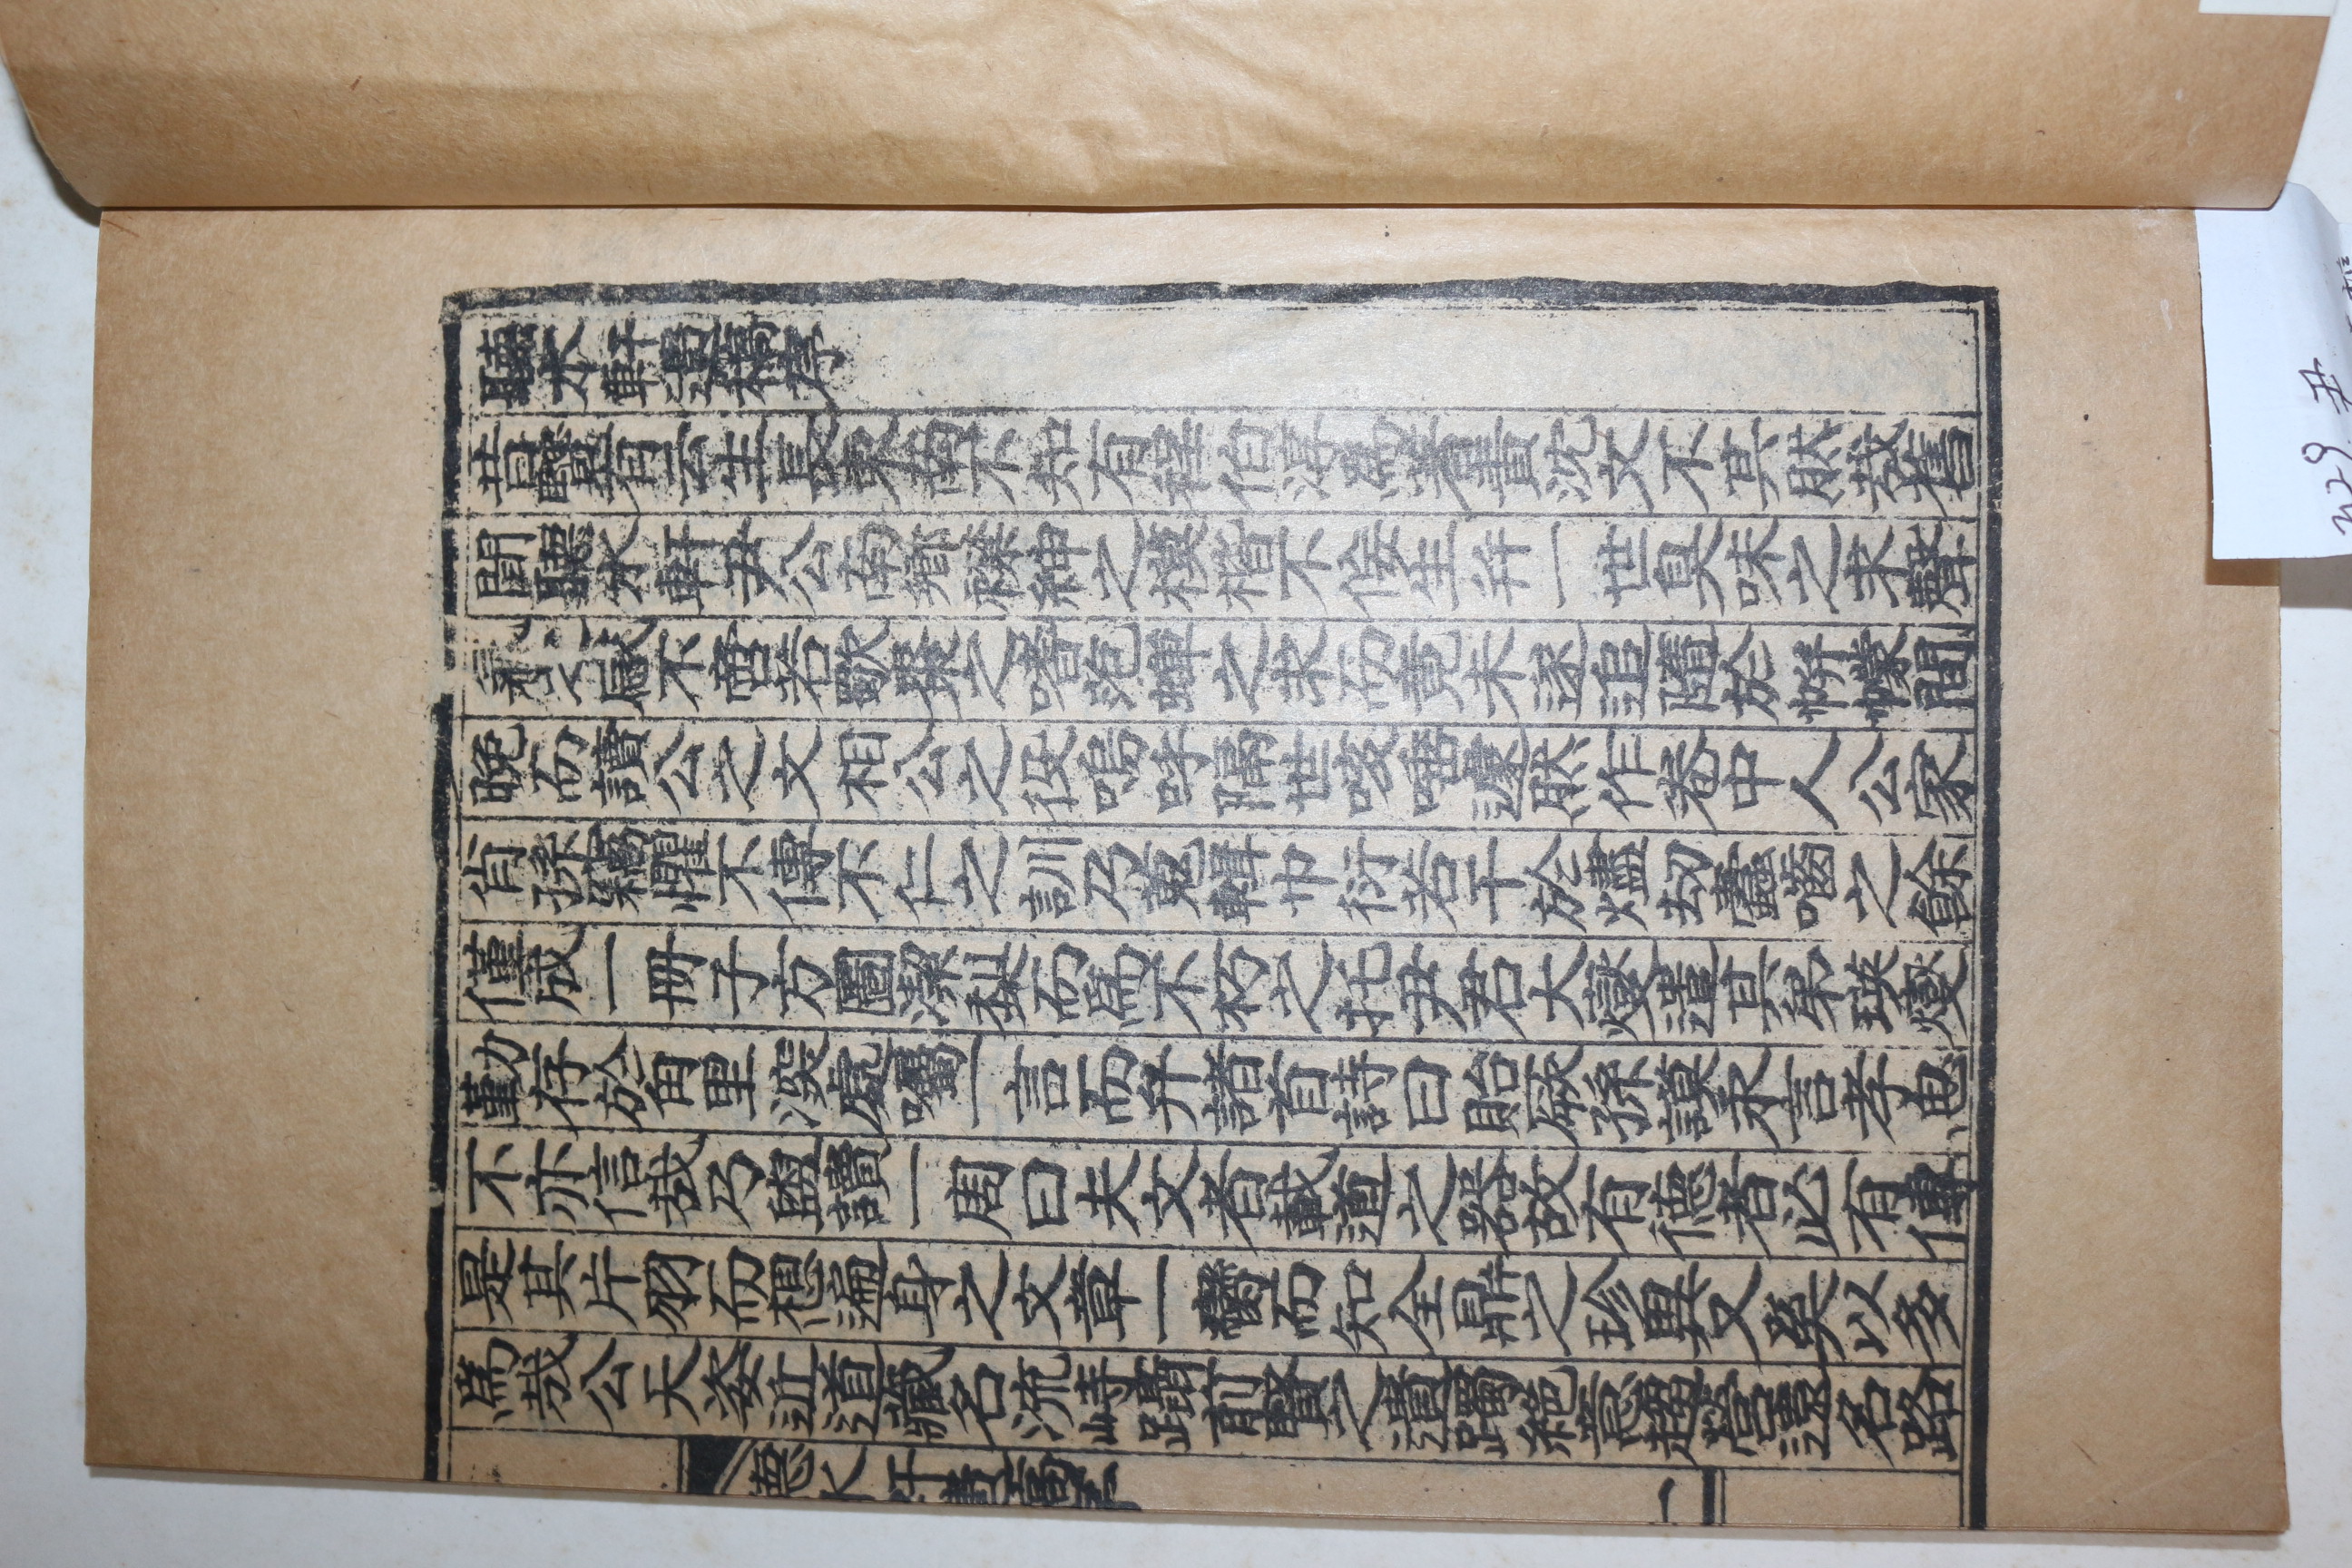 聽水軒遺稿序
昔賢有云生長東南不知有程伯淳爲著責沈文不其然哉舊
聞聽水軒尹公南鄕襟紳之模楷不佞生幷一世臭味之求聲
氣之感不啻若歜棗之嗜范蟬之求而竟未遂追隨於帡幪間
晩而讀公之文相公之役嗚呼隔世咳唾遽然作卷中人公家
肖孫竊懼不傳不仁之訓乃蒐輯巾衍若干於燼劫蠹嚙之餘
僅成一冊子方圖潔梨而爲不朽之托尹君大燮遣其弟瑛燮
勤存於甪里深處囑一言而弁諸首詩曰貽厥孫謨永言孝思
不亦信哉乃盥讀一周曰夫文者載道之器故有德者必有傳
是其片羽而想遍身之文章一臠而知全鼎之珍異又奚以多
爲哉公天姿近道藏名流峙躡前賢之遺躅絶意趨營遠名路
聽水軒遺稿序
一
329 尹